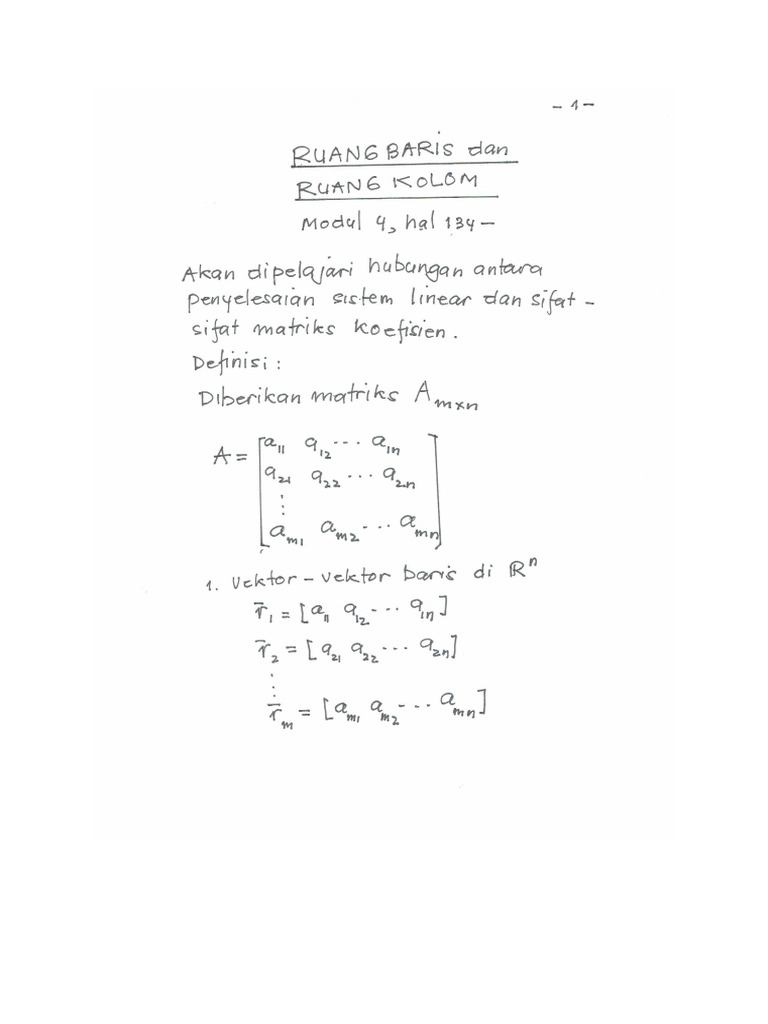 - 1 -
RUANG BARIS dan
RUANG KOLOM
Modul 4, hal 134 -
Akan dipelajari hubungan antara
penyelesaian sistem linear dan sifat -
sifat matriks koefisien.
Definisi :
Diberikan matriks A_{m×n}
A = [a_{11} a_{12} ... a_{1n}
a_{21} a_{22} ... a_{2n}
⋮
a_{m1} a_{m2} ... a_{mn}]
1. Vektor - vektor baris di ℝ^n
r̄_1 = [a_{11} a_{12} ... a_{1n}]
r̄_2 = [a_{21} a_{22} ... a_{2n}]
⋮
r̄_m = [a_{m1} a_{m2} ... a_{mn}]